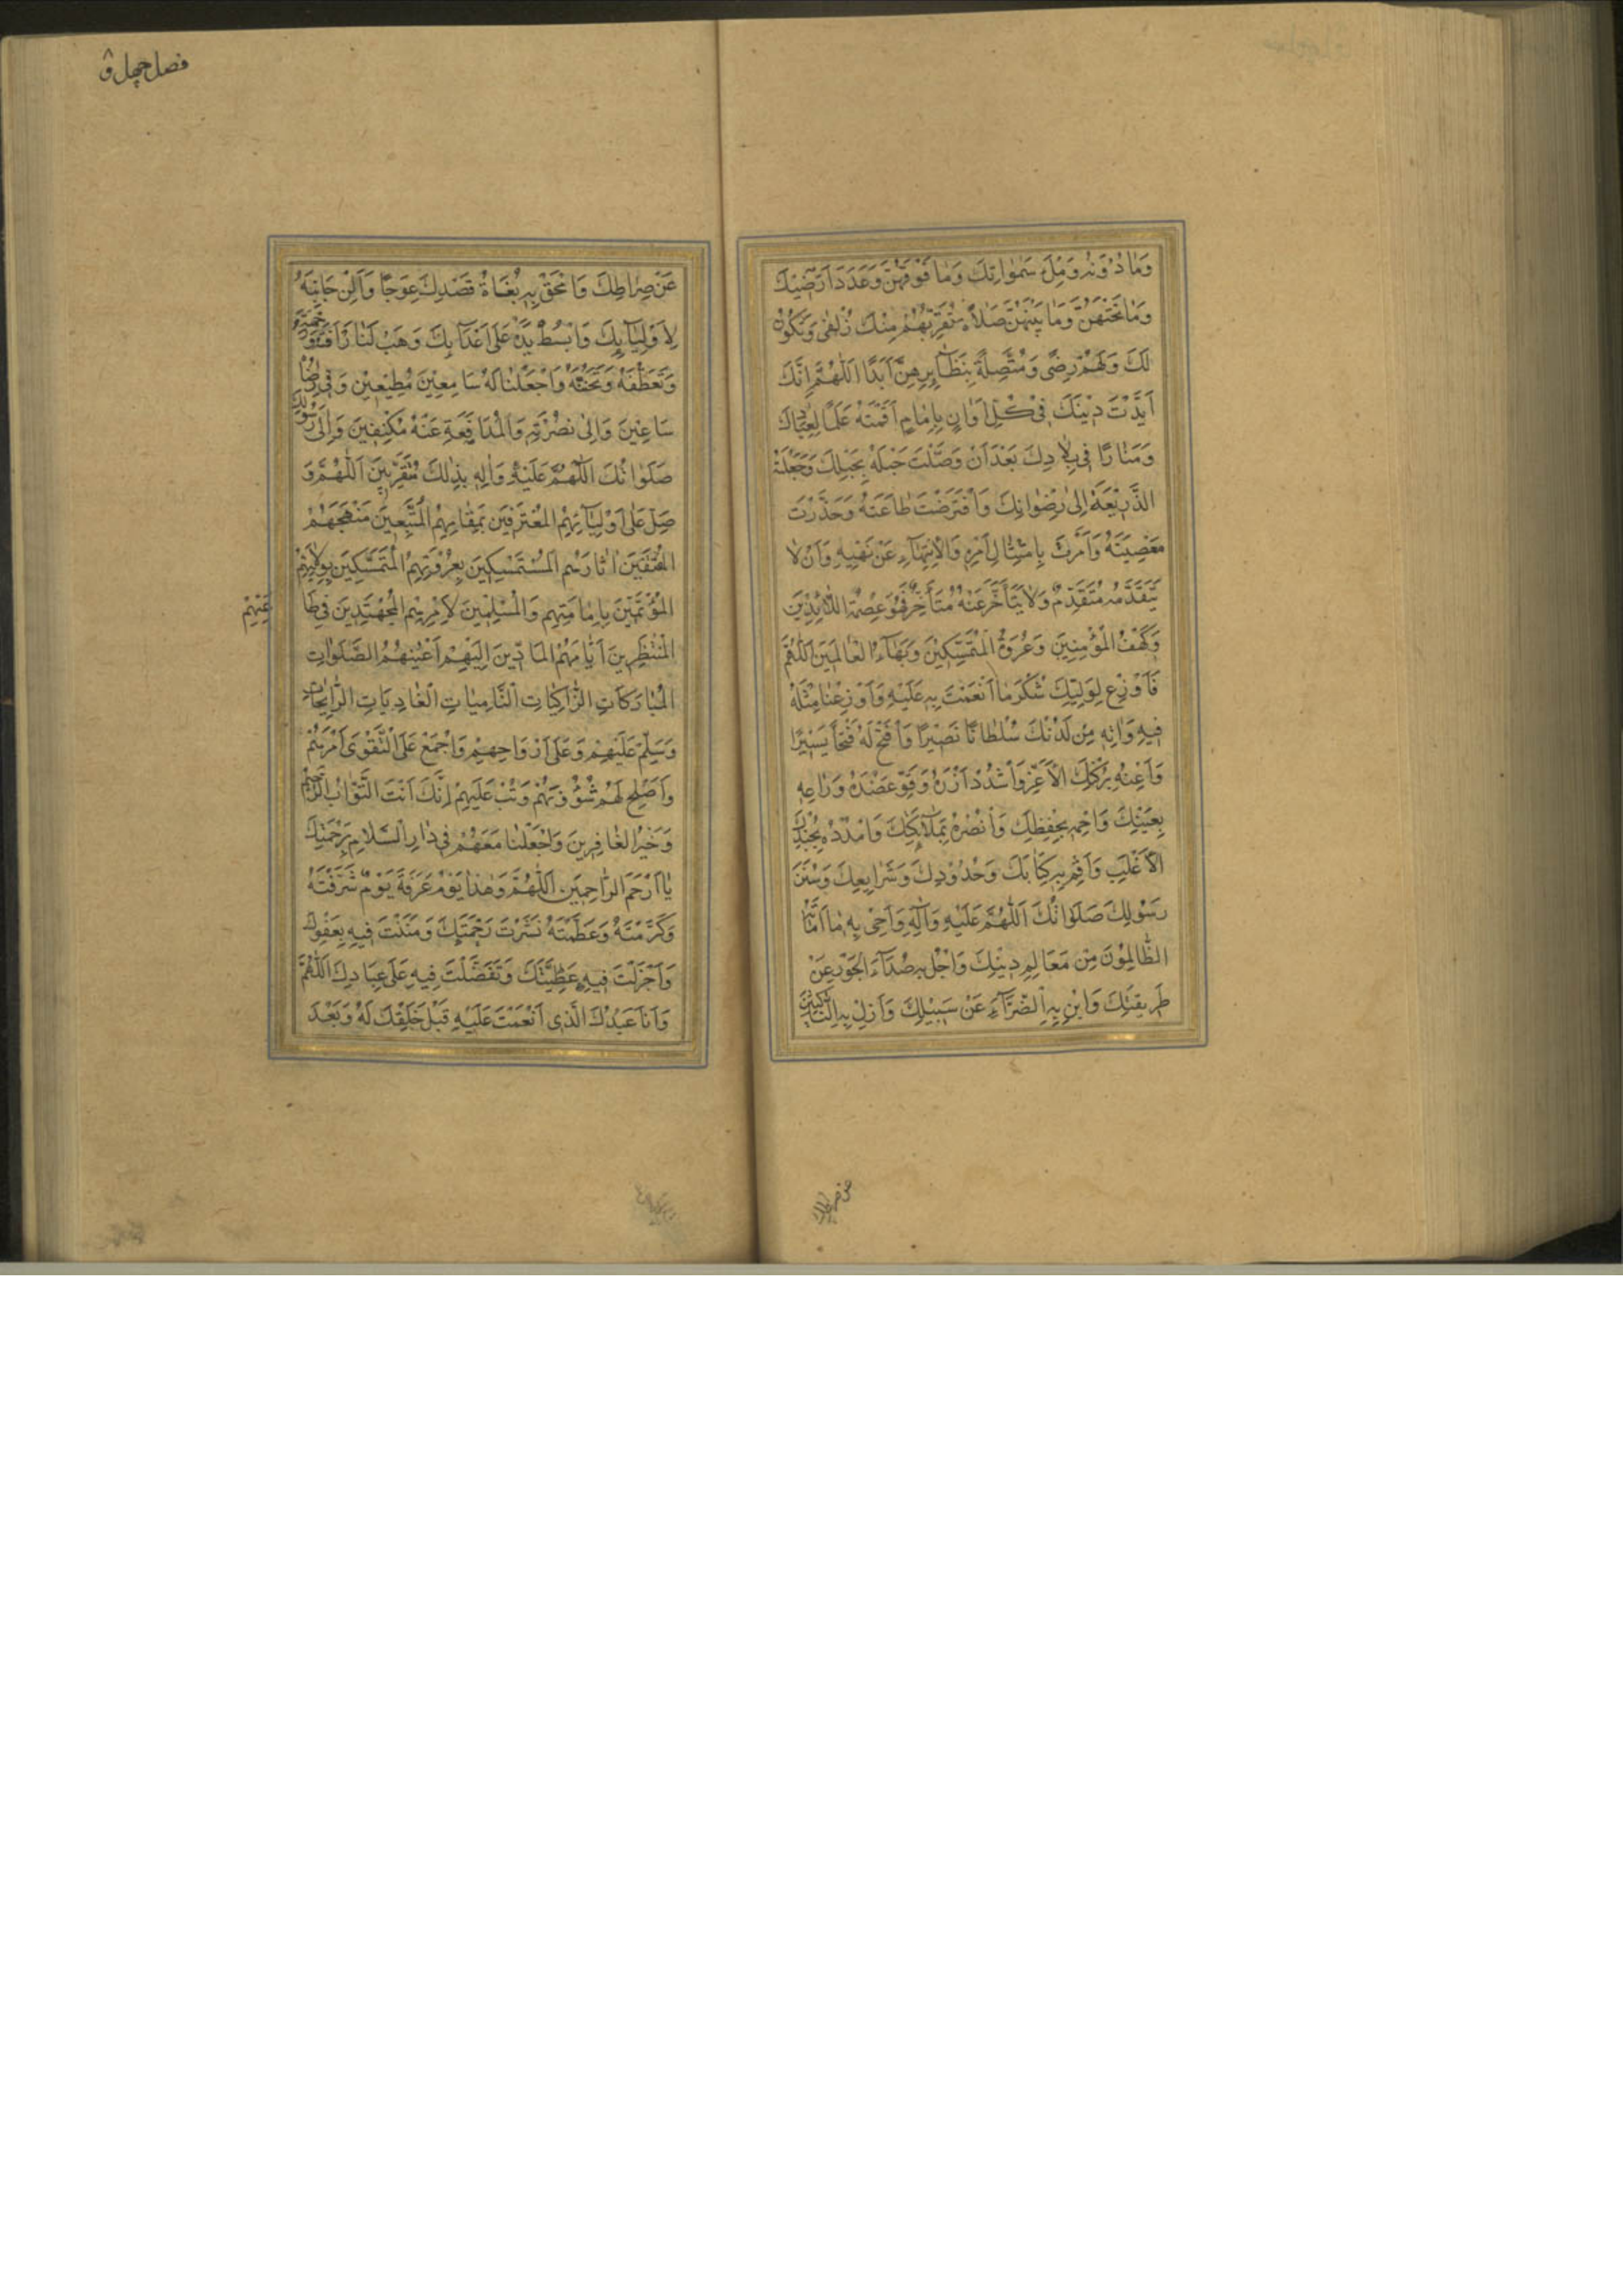 وَمَا دُوْنَهُ وَمِلْءَ سَمٰوَاتِكَ وَمَا فَوْقَهُنَّ وَعَدَدَ اَرَضِيْكَ
وَمَا تَحْتَهُنَّ وَمَا بَيْنَهُنَّ صَلَاةً تُقَرِّبُهُمْ مِنْكَ زُلْفٰى وَتَكُوْنُ
لَكَ وَلَهُمْ رِضًى وَمُتَّصِلَةً بِنَظَآئِرِهِنَّ اَبَدًا اَللّٰهُمَّ اِنَّكَ
اَيَّدْتَ دِيْنَكَ فِيْ كُلِّ اَوَانٍ بِاِمَامٍ اَقَمْتَهُ عَلَمًا لِعِبَادِكَ
وَمَنَارًا فِى بِلَادِكَ بَعْدَ اَنْ وَصَلْتَ حَبْلَهُ بِحَبْلِكَ وَجَعَلْتَهُ
الذَّرِيْعَةَ اِلٰى رِضْوَانِكَ وَافْتَرَضْتَ طَاعَتَهُ وَحَذَّرْتَ
مَعْصِيَتَهُ وَاَمَرْتَ بِامْتِثَالِ اَمْرِهِ وَالْاِنْتِهَآءِ عَنْ نَهْيِهِ وَاَنْ لَا
يَتَقَدَّمَهُ مُتَقَدِّمٌ وَلَا يَتَأَخَّرَ عَنْهُ مُتَأَخِّرٌ فَهُوَ عِصْمَةُ اللَّآئِذِيْنَ
وَكَهْفُ الْمُؤْمِنِيْنَ وَعُرْوَةُ الْمُتَمَسِّكِيْنَ وَبَهَآءُ الْعَالَمِيْنَ اَللّٰهُمَّ
فَاَوْزِعْ لِوَلِيِّكَ شُكْرَ مَا اَنْعَمْتَ بِهِ عَلَيْهِ وَاَوْزِعْنَا مِثْلَهُ
فِيْهِ وَاٰتِهِ مِنْ لَدُنْكَ سُلْطَانًا نَصِيْرًا وَافْتَحْ لَهُ فَتْحًا يَسِيْرًا
وَاَعِنْهُ بِرُكْنِكَ الْاَعَزِّ وَاشْدُدْ اَزْرَهُ وَقَوِّ عَضُدَهُ وَرَاعِهِ
بِعَيْنِكَ وَاحْمِهِ بِحِفْظِكَ وَانْصُرْهُ بِمَلَآئِكَتِكَ وَامْدُدْهُ بِجُنْدِكَ
الْاَغْلَبِ وَاَقِمْ بِهِ كِتَابَكَ وَحُدُوْدَكَ وَشَرَايِعَكَ وَسُنَنَ
رَسُوْلِكَ صَلَوَاتُكَ اَللّٰهُمَّ عَلَيْهِ وَاٰلِهِ وَاَحْىِ بِهِ مَا اَمَاتَهُ
الظَّالِمُوْنَ مِنْ مَعَالِمِ دِيْنِكَ وَاجْلُ بِهِ صَدَآءَ الْجَوْرِ عَنْ
طَرِيقَتِكَ وَابِنْ بِهِ الضَّرَّآءَ عَنْ سَبِيْلِكَ وَاَزِلْ بِهِ النَّاكِبِيْنَ
فصل چهل و
عَنْ صِرَاطِكَ وَامْحَقْ بِهِ بُغَاةَ قَصْدِكَ عِوَجًا وَاَلِنْ جَانِبَهُ
لِاَوْلِيَآئِكَ وَابْسُطْ يَدَهُ عَلٰى اَعْدَآئِكَ وَهَبْ لَنَا رَأْفَتَهُ وَرَحْمَتَهُ
وَتَعَطُّفَهُ وَتَحَنُّنَهُ وَاجْعَلْنَا لَهُ سَامِعِيْنَ مُطِيْعِيْنَ وَفِى رِضَاهُ
سَاعِيْنَ وَاِلٰى نُصْرَتِهِ وَالْمُدَافَعَةِ عَنْهُ مُكْنِفِيْنَ وَاِلَى رَسُوْلِكَ
صَلَوَاتُكَ اللّٰهُمَّ عَلَيْهِ وَاٰلِهِ بِذٰلِكَ مُتَقَرِّبِيْنَ اَللّٰهُمَّ وَ
صَلِّ عَلٰى اَوْلِيَآئِهِمُ الْمُعْتَرِفِيْنَ بِمَقَامِهِمُ الْمُتَّبِعِيْنَ مَنْهَجَهُمْ
الْمُقْتَفِيْنَ اٰثَارَهُمُ الْمُسْتَمْسِكِيْنَ بِعُرْوَتِهِمُ الْمُتَمَسِّكِيْنَ بِوِلَايَتِهِمُ
الْمُؤْتَمِّيْنَ بِاِمَامَتِهِمْ وَالْمُسَلِّمِيْنَ لِاَمْرِهِمُ الْمُجْتَهِدِيْنَ فِى طَا
عَتِهِمْ
الْمُنْتَظِرِيْنَ اَيَّامَهُمُ الْمَادِّيْنَ اِلَيْهِمْ اَعْيُنَهُمُ الصَّلَوَاتِ
الْمُبَارَكَاتِ الزَّاكِيَاتِ النَّامِيَاتِ الْغَادِيَاتِ الرَّايِحَاتِ
وَسَلِّمْ عَلَيْهِمْ وَعَلٰى اَرْوَاحِهِمْ وَاجْمَعْ عَلَى التَّقْوٰى اَمْرَهُمْ
وَاَصْلِحْ لَهُمْ شُؤُوْنَهُمْ وَتُبْ عَلَيْهِمْ اِنَّكَ اَنْتَ التَّوَّابُ الرَّحِيْمُ
وَخَيْرُ الْغَافِرِيْنَ وَاجْعَلْنَا مَعَهُمْ فِى دَارِ السَّلَامِ بِرَحْمَتِكَ
يَا اَرْحَمَ الرَّاحِمِيْنَ اَللّٰهُمَّ وَهٰذَا يَوْمُ عَرَفَةَ يَوْمٌ شَرَّفْتَهُ
وَكَرَّمْتَهُ وَعَظَّمْتَهُ نَشَرْتَ رَحْمَتَكَ وَمَنَنْتَ فِيْهِ بِعَفْوِكَ
وَاَجْزَلْتَ فِيْهِ عَطِيَّتَكَ وَتَفَضَّلْتَ فِيْهِ عَلٰى عِبَادِكَ اَللّٰهُمَّ
وَاَنَا عَبْدُكَ الَّذِى اَنْعَمْتَ عَلَيْهِ قَبْلَ خَلْقِكَ لَهُ وَبَعْدَ